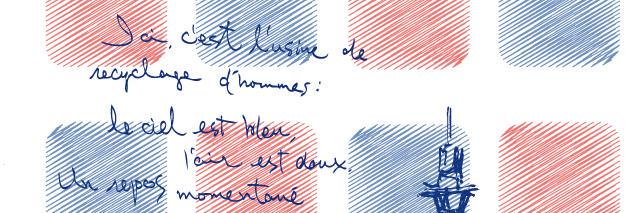 Ici, c'est l'usine de
recyclage d'hommes:
le ciel est bleu,
l'air est doux.
Un repos momentané